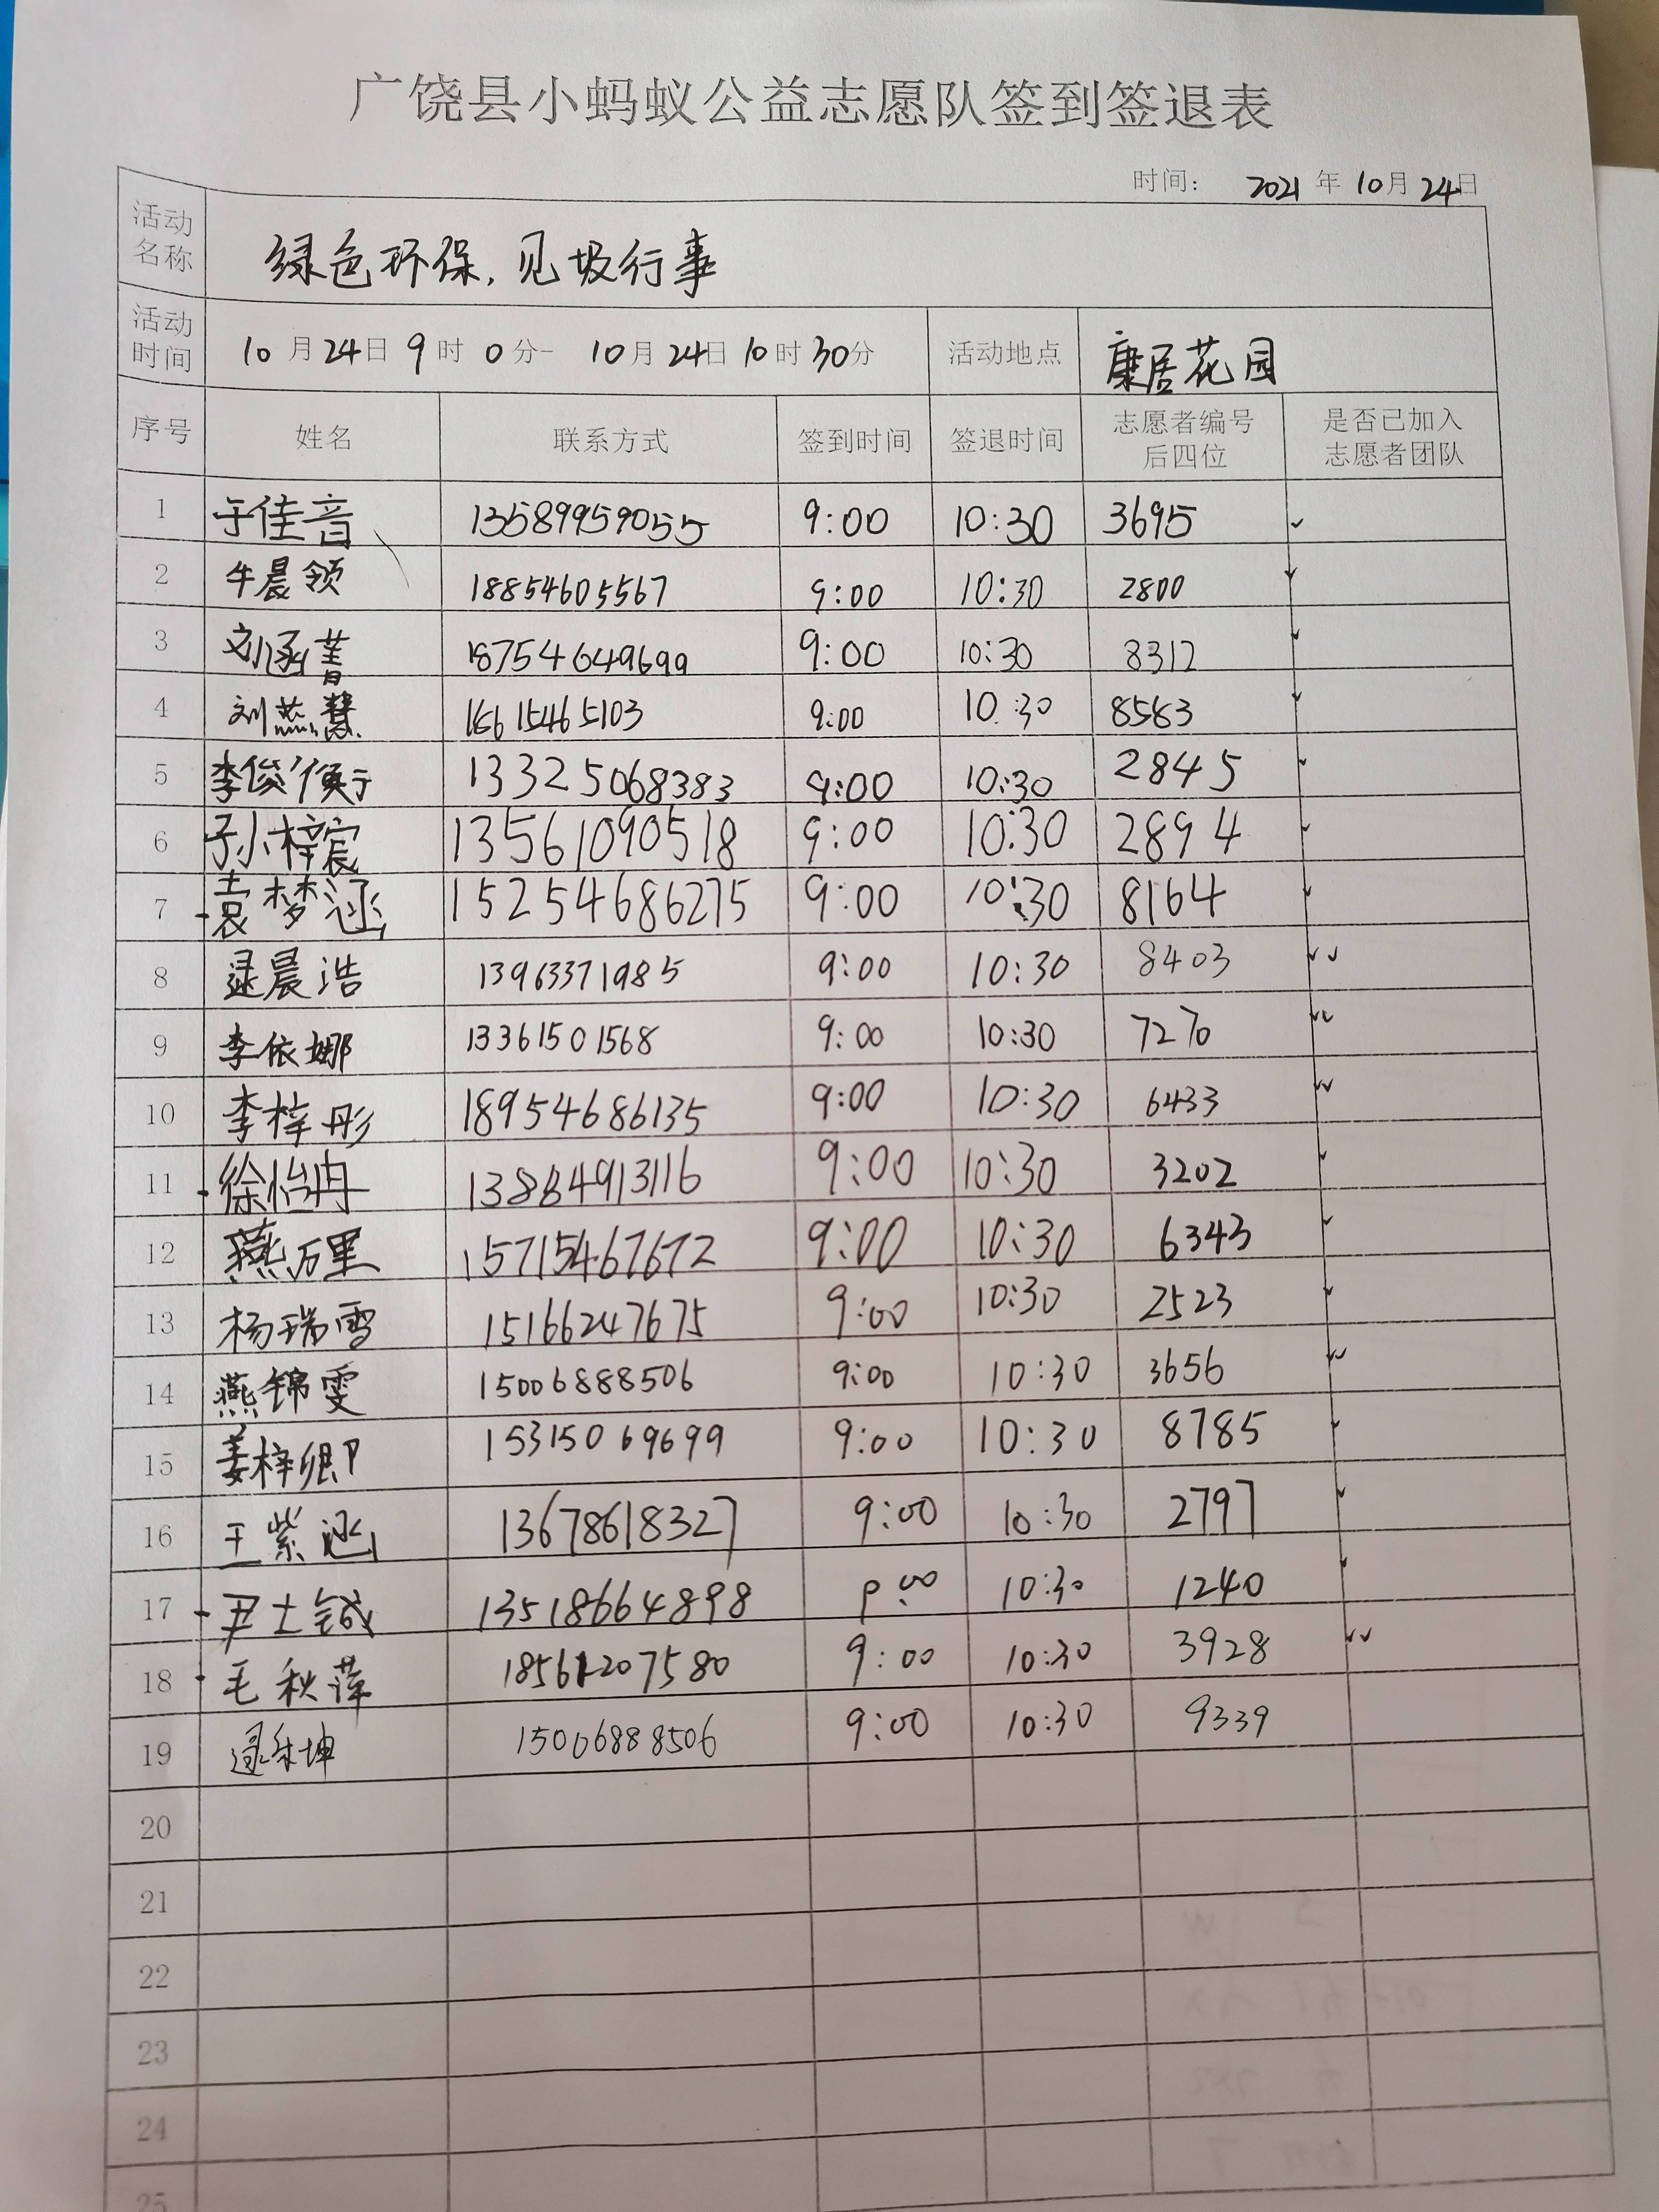 广饶县小蚂蚁公益志愿队签到签退表
时间： 2021 年 10 月 24 日
活动名称 绿色环保，见圾行事
活动时间 10 月 24 日 9 时 0 分- 10 月 24 日 10 时 30 分 活动地点 康居花园
序号 姓名 联系方式 签到时间 签退时间 志愿者编号后四位 是否已加入志愿者团队
1 于佳音 13589959055 9:00 10:30 3695 ✓
2 牛晨领 18854605567 9:00 10:30 2800 ✓
3 刘涵菁 18754649699 9:00 10:30 8312 ✓
4 刘燕慧 15465103 9:00 10:30 8563 ✓
5 李俊 13325068383 9:00 10:30 2845 ✓
6 孙梓宸 13561090518 9:00 10:30 2894 ✓
7 袁梦涵 15254686275 9:00 10:30 8164 ✓
8 逯晨浩 13963371985 9:00 10:30 8403 ✓✓
9 李依娜 13361501568 9:00 10:30 7270 ✓✓
10 李梓彤 18954686135 9:00 10:30 6433 ✓✓
11 徐怡冉 13864913116 9:00 10:30 3202 ✓
12 燕万里 15715467672 9:00 10:30 6343 ✓
13 杨瑞雪 15166247675 9:00 10:30 2523 ✓
14 燕锦雯 15006888506 9:00 10:30 3656 ✓✓
15 姜梓卿 15315069699 9:00 10:30 8785 ✓
16 王紫涵 13678618327 9:00 10:30 2797 ✓
17 尹士钺 135186664898 9:00 10:30 1240 ✓
18 毛秋萍 18561207580 9:00 10:30 3928 ✓✓
19 逯坤 15006888506 9:00 10:30 9339
20
21
22
23
24
25